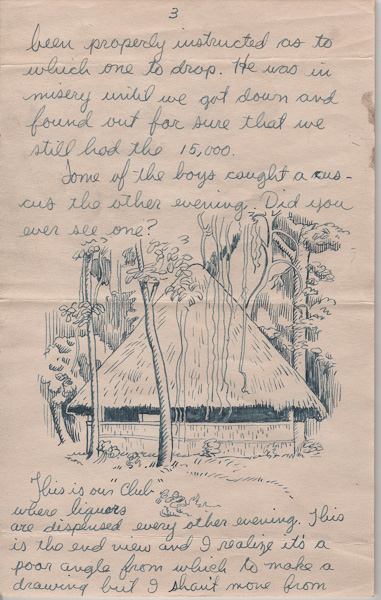 3
been properly instructed as to
which one to drop. He was in
misery until we got down and
found out for sure that we
still had the 15,000.
Some of the boys caught a cus-
cus the other evening. Did you
ever see one?
This is our "Club"
where liquors
are dispensed every other evening. This
is the end view and I realize it's a
poor angle from which to make a
drawing but I shan't move from